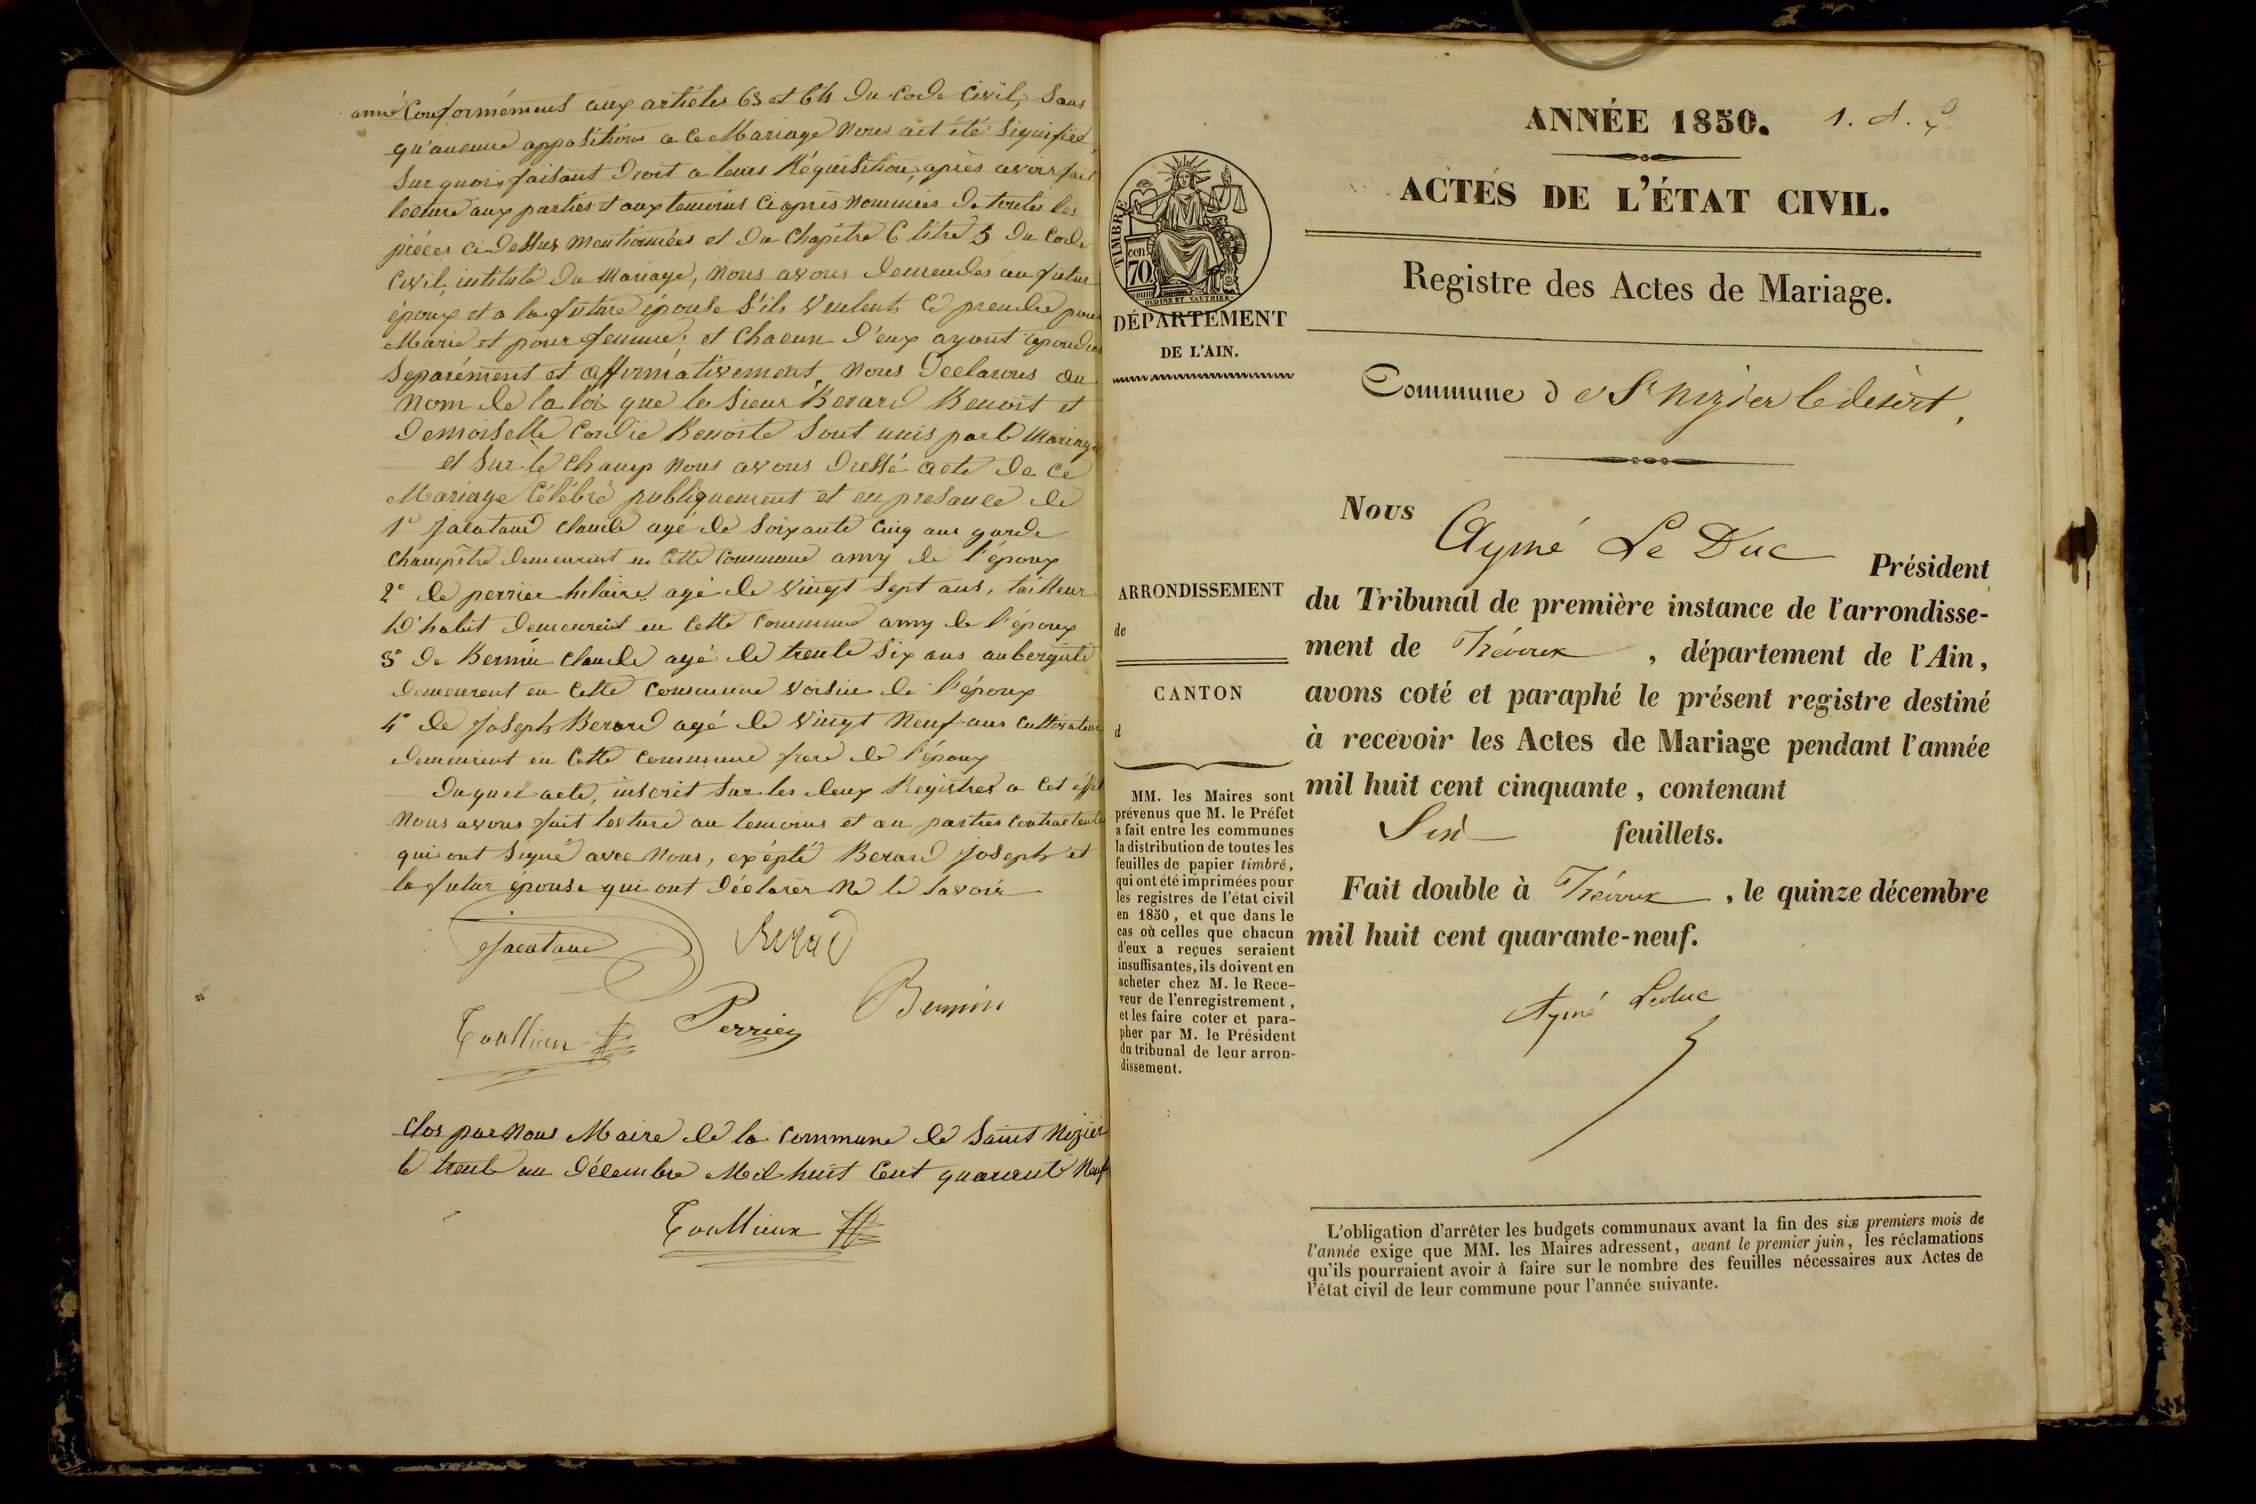 anné Conformément aux articles 63 et 64 du Code Civil, Sans
qu'aucune oppositions a ce Mariage nous ait été Signifiée,
Sur quoi, faisant droit a leurs Réquisition, après avoir fait
lecture aux parties et aux temoins ci après nommées de toutes les
pièces ci Dessus mentionnées et du Chapitre 6 titre 5 du Code
Civil, intitulé du Mariage, nous avons demendés au futur
époux et a la future épouse S'ils veulent ce prendre pour
Marie et pour femme; et chacun d'eux ayant repondu
Separément et affirmativement, nous Declarons au
nom de la loi que le Sieur Berard Benoit et
demoiselle Cordié Benoite Sont unis par le Mariage
et Sur le champ nous avons dressé acte de ce
Mariage Célébré publiquement et en presance de
1° Jacataud Claude agé de Soixante Cinq ans garde
champêtre demeurent en Cette Commune amy de l'époux
2° de perrier hilaire agé de vingt Sept ans, tailleur
D'habit demeurent en Cette Commune amy de l'époux
3° de Bernin Claude agé de trente Six ans aubergiste
demeurent en Cette Commune voisin de l'époux
4° de Joseph Berard agé de vingt Neuf ans Cultivateur
demeurent en Cette Commune frere de l'époux
Duquel acte, inscrit Sur les deux Registres a Cet effet
Nous avons fait lecture au temoins et au parties Contractente
qui ont Signé avec Nous, exépté Berard Joseph et
la futur épouse qui ont Déclarér Ne le Savoir
Jacataud Berard
Bernin
Perrier
clos par Nous Maire de la Commune de Saint Nizier
le trente un Décembre Mil huit Cent quarante Neuf
TIMBRE
cen.
70
OUDINE ET VAUTHIER
DÉPARTEMENT
DE L'AIN.
ARRONDISSEMENT
de
CANTON
d
MM. les Maires sont
prévenus que M. le Préfet
a fait entre les communes
la distribution de toutes les
feuilles de papier timbré,
qui ont été imprimées pour
les registres de l'état civil
en 1850, et que dans le
cas où celles que chacun
d'eux a reçues seraient
insuffisantes, ils doivent en
acheter chez M. le Rece-
veur de l'enregistrement,
et les faire coter et para-
pher par M. le Président
du tribunal de leur arron-
dissement.
ANNÉE 1850.
ACTES DE L'ÉTAT CIVIL.
Registre des Actes de Mariage.
Commune d e St nizier le desert,
Nous Aymé Le Duc Président
du Tribunal de première instance de l'arrondisse-
ment de Trévoux, département de l'Ain,
avons coté et paraphé le présent registre destiné
à recevoir les Actes de Mariage pendant l'année
mil huit cent cinquante, contenant
feuillets.
Fait double à Trévoux, le quinze décembre
mil huit cent quarante-neuf.
Aymé Leduc
L'obligation d'arrêter les budgets communaux avant la fin des six premiers mois de
l'année exige que MM. les Maires adressent, avant le premier juin, les réclamations
qu'ils pourraient avoir à faire sur le nombre des feuilles nécessaires aux Actes de
l'état civil de leur commune pour l'année suivante.